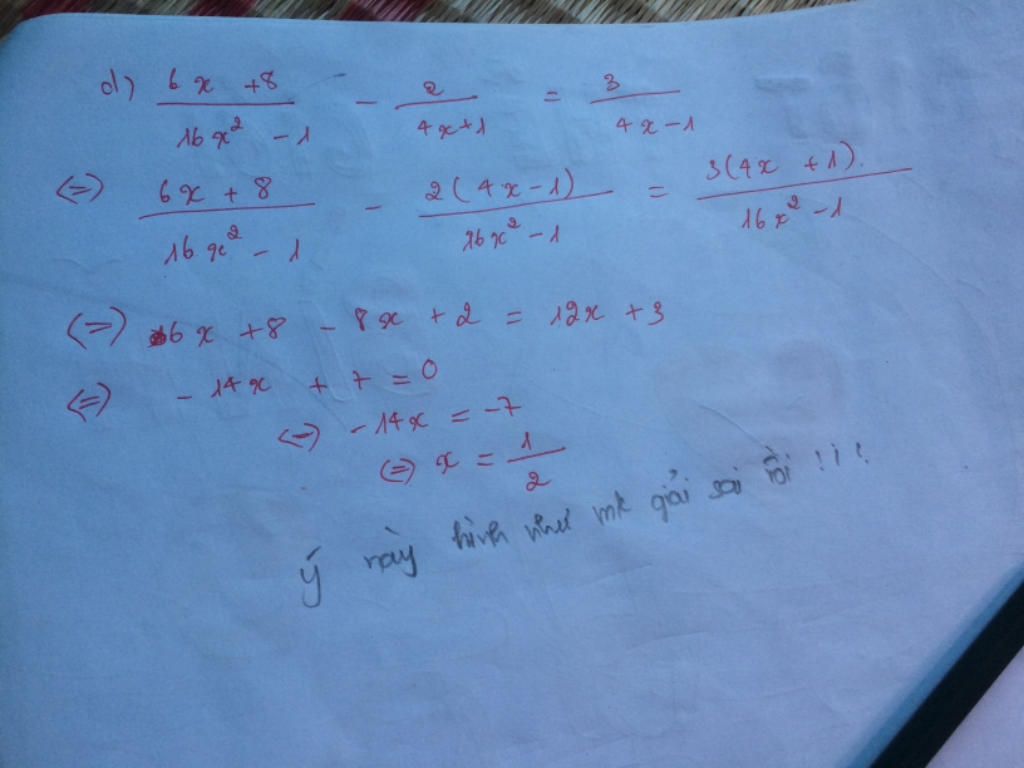 d) \frac{6x+8}{16x^2-1} - \frac{2}{4x+1} = \frac{3}{4x-1}
(=) \frac{6x+8}{16x^2-1} - \frac{2(4x-1)}{16x^2-1} = \frac{3(4x+1).}{16x^2-1}
(=) 6x + 8 - 8x + 2 = 12x + 3
(=) -14x + 7 = 0
(=) -14x = -7
(=) x = \frac{1}{2}
ý này hình như mk giải sai rồi !!!